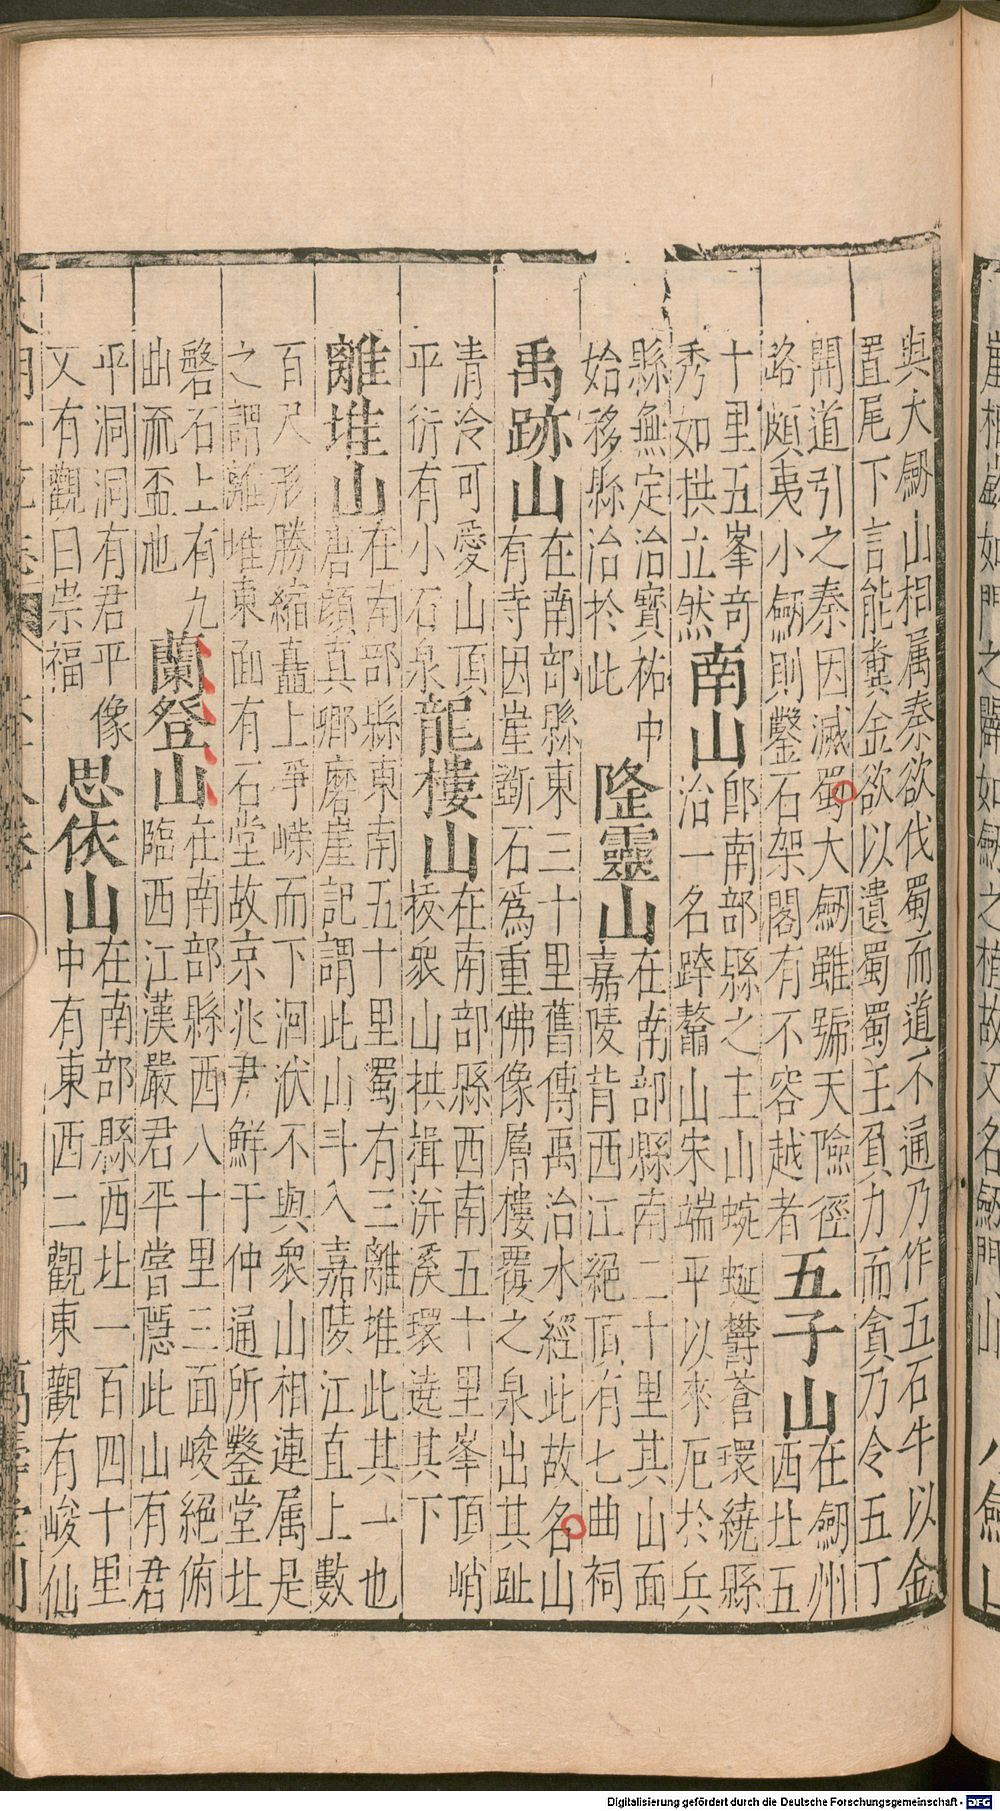 崖相嶔如門之闢如劔之植故又名劔門山
與大劔山相属秦欲伐蜀而道不通乃作五石牛以金
置尾下言能糞金欲以遺蜀蜀王負力而貪乃令五丁
開道引之秦因滅蜀大劔雖號天險徑
路頗夷小劔則鑿石架閣有不容越者
五子山
在劔州
西北五
十里五峯竒
秀如拱立然
南山
即南部縣之主山蜿蜒欝蒼環繞縣
治一名跨鼇山宋端平以來厄於兵
縣無定治寳祐中
始移縣治於此
隆靈山
在南部縣南二十里其山面
嘉陵背西江絕頂有七曲祠
禹跡山
在南部縣東三十里舊傳禹治水經此故名山
有寺因崖斲石為重佛像層樓覆之泉出其趾
清泠可愛山頂
平衍有小石泉
龍樓山
在南部縣西南五十里峯頂峭
㧞衆山拱揖洴溪環遶其下
離堆山
在南部縣東南五十里蜀有三離堆此其一也
唐顔真卿磨崖記謂此山斗入嘉陵江直上數
百尺形勝縮矗上爭嶸而下洄洑不與衆山相連属是
之謂離堆東面有石堂故京兆尹鮮于仲通所鑿堂北
磐石上有九
曲流盃池
蘭登山
在南部縣西八十里三面峻絕俯
臨西江漢嚴君平嘗隱此山有君
平洞洞有君平像
又有觀曰崇福
思依山
在南部縣西北一百四十里
中有東西二觀東觀有峻仙
萬壽堂刊
Digitalisierung gefördert durch die Deutsche Forschungsgemeinschaft - DFG